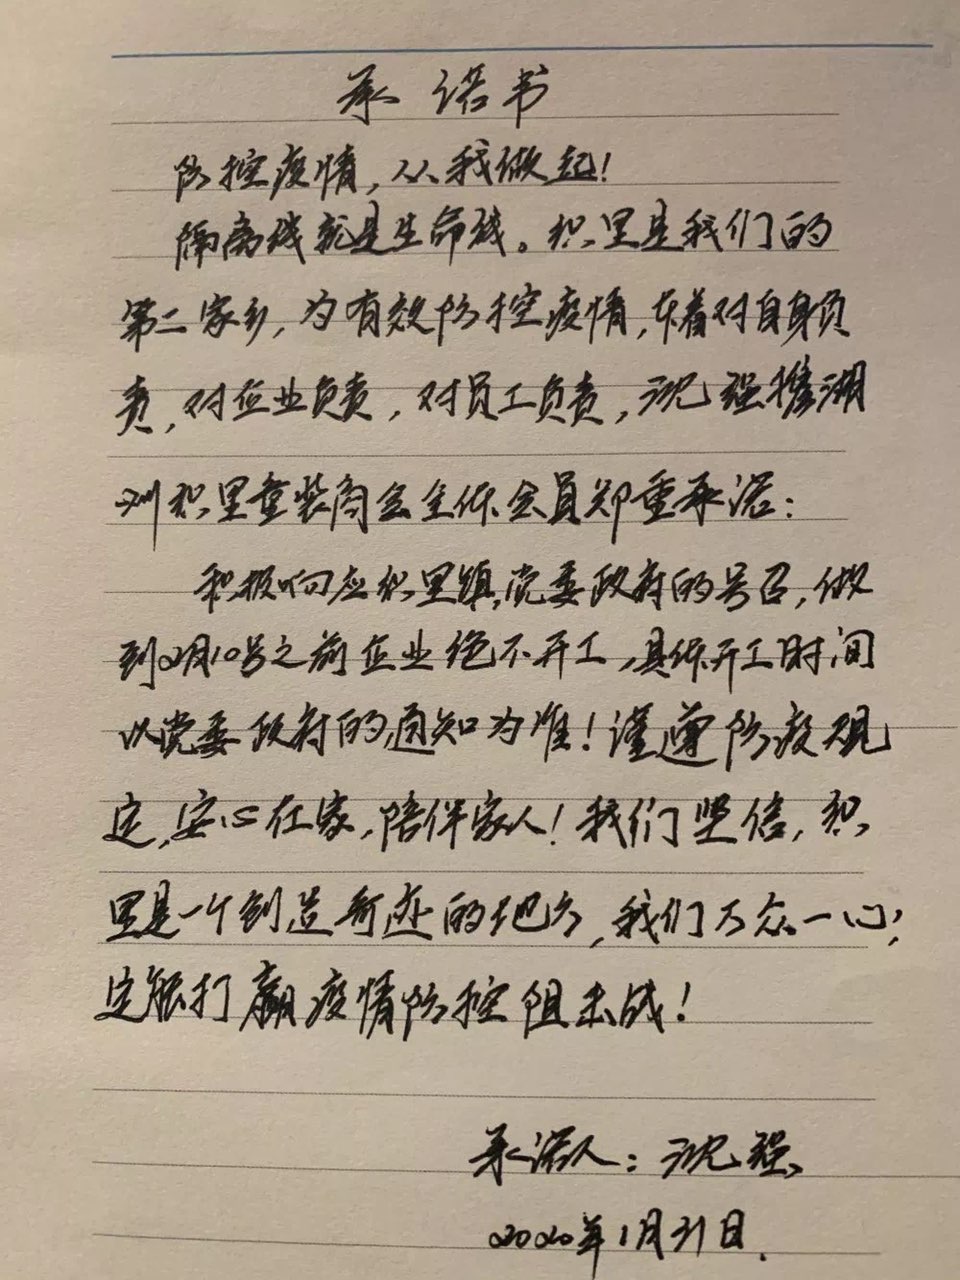 承诺书
防控疫情,从我做起!
隔离线就是生命线。织里是我们的
第二家乡,为有效防控疫情,本着对自身负
责,对企业负责,对员工负责,沈强携湖
州织里童装商会全体会员郑重承诺:
积极响应织里镇党委政府的号召,做
到2月10号之前企业绝不开工,具体开工时间
以党委政府的通知为准!谨遵防疫规
定,安心在家,陪伴家人!我们坚信,织
里是一个创造奇迹的地方,我们万众一心,
定能打赢疫情防控阻击战!
承诺人:沈强
2020年1月31日.